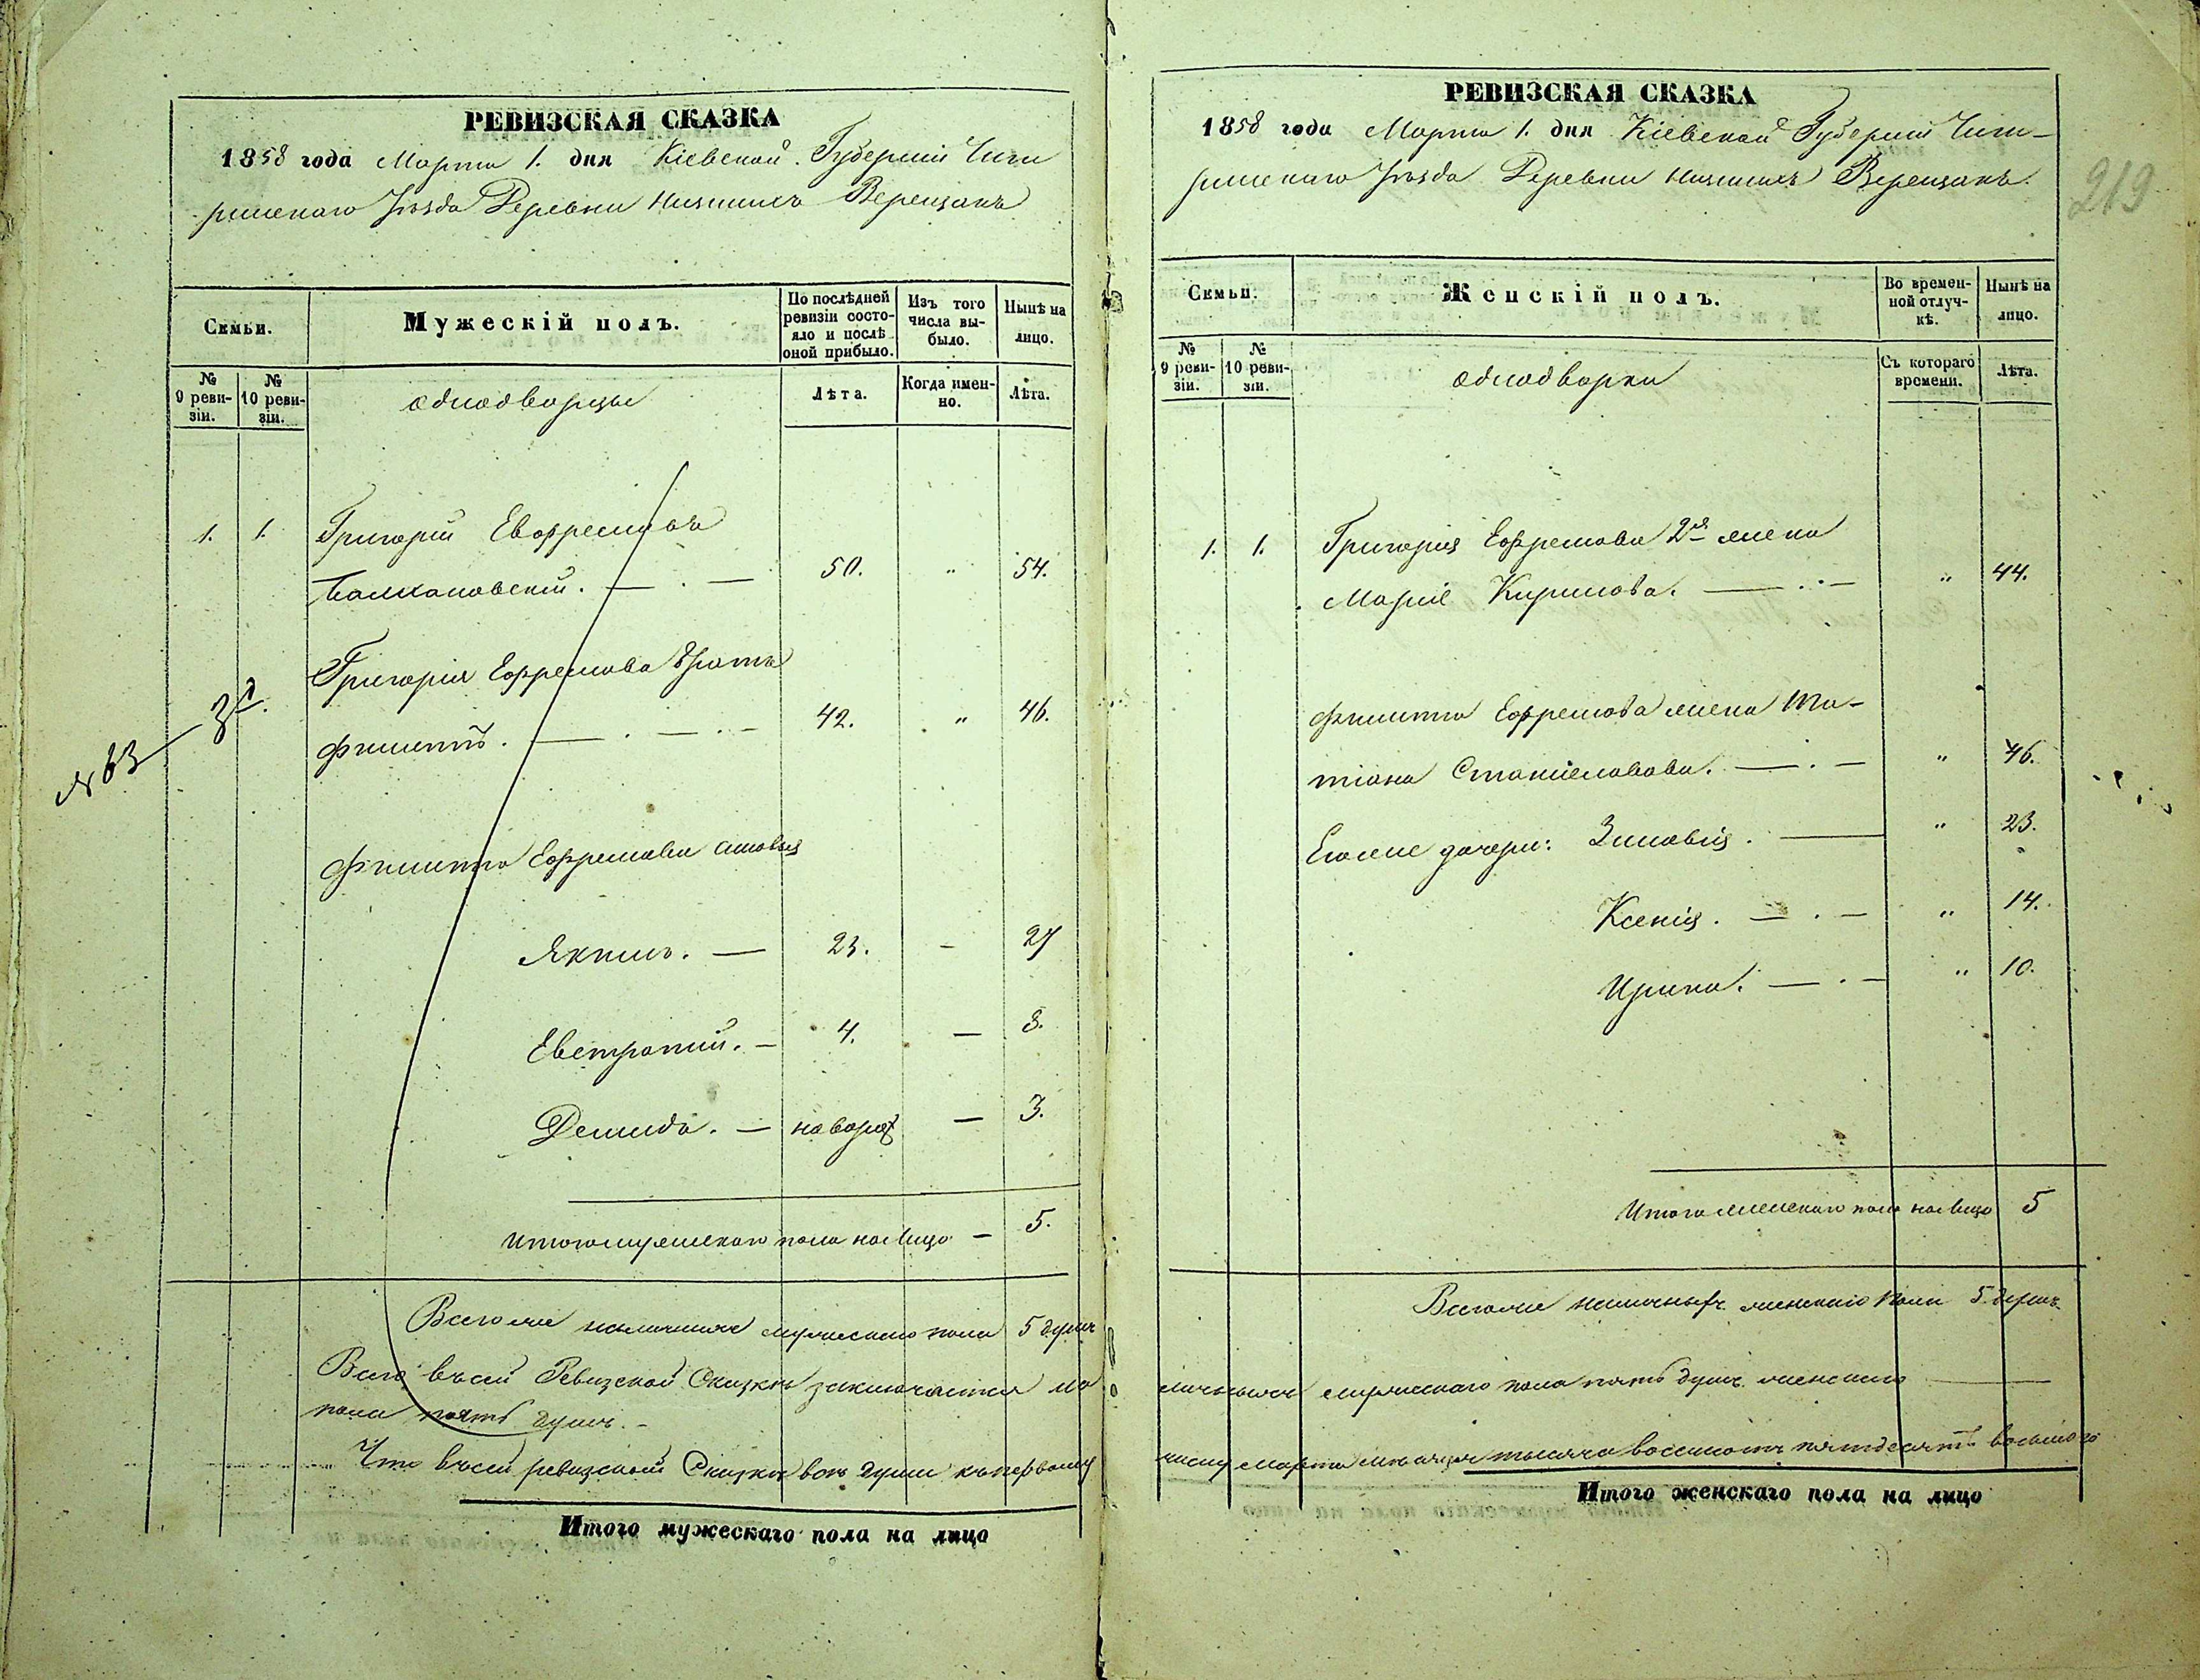 РЕВИЗСКАЯ СКАЗКА
1858 года Марта 1. дня Кіевской Губерніи Чиги
ринскаго Уѣзда Деревни Низшихъ Верещакъ
Семьи.
Мужескій полъ.
По послѣдней ревизіи состояло и послѣ оной прибыло.
Изъ того числа выбыло.
Нынѣ на лицо.
№ 9 ревизіи.
№ 10 ревизіи.
однодворцы
Лѣта.
Когда именно.
Лѣта.
1. 1. Григорій Евфремовъ
50. " 54.
Григорія Ефремова братъ
Филиппъ. 42. " 46.
№ 63 3
Филиппа Ефремова сыновья
Якимъ. — 23. – 27
Евстратій. – 4. — 8.
Демидъ. — новорож — 3.
Итого мужескаго пола на лицо – 5.
Всего же наличныхъ мужескаго пола 5 душъ
Всего въ сей Ревизской Сказкѣ заключается на
пола пять душъ. –
Что въ сей ревизской Сказкѣ всѣ души къ первому
Итого мужескаго пола на лицо
РЕВИЗСКАЯ СКАЗКА
219
1858 года Марта 1. дня Кіевской Губерніи Чиги–
ринскаго Уѣзда Деревни Низшихъ Верещакъ.
Семьи.
Женскій полъ.
Во временной отлучкѣ.
Нынѣ на лицо.
№ 9 ревизіи.
№ 10 ревизіи.
однодворки
Съ котораго времени.
Лѣта.
1. 1. Григорія Ефремова 2я жена
Марія Кирилова. " 44.
Филиппа Ефремова жена Та–
тіана Станиславова. " 46.
Ихъ же дочери: Зиновія. " 23.
Ксенія. " 14.
Ирина. " 10.
Итого женскаго пола на лицо 5
Всего же наличныхъ женскаго пола 5 душъ.
личныхъ мужескаго пола пять душъ женскаго
числу Марта мѣсяца тысяча восемсотъ пятдесятъ восьмого
Итого женскаго пола на лицо